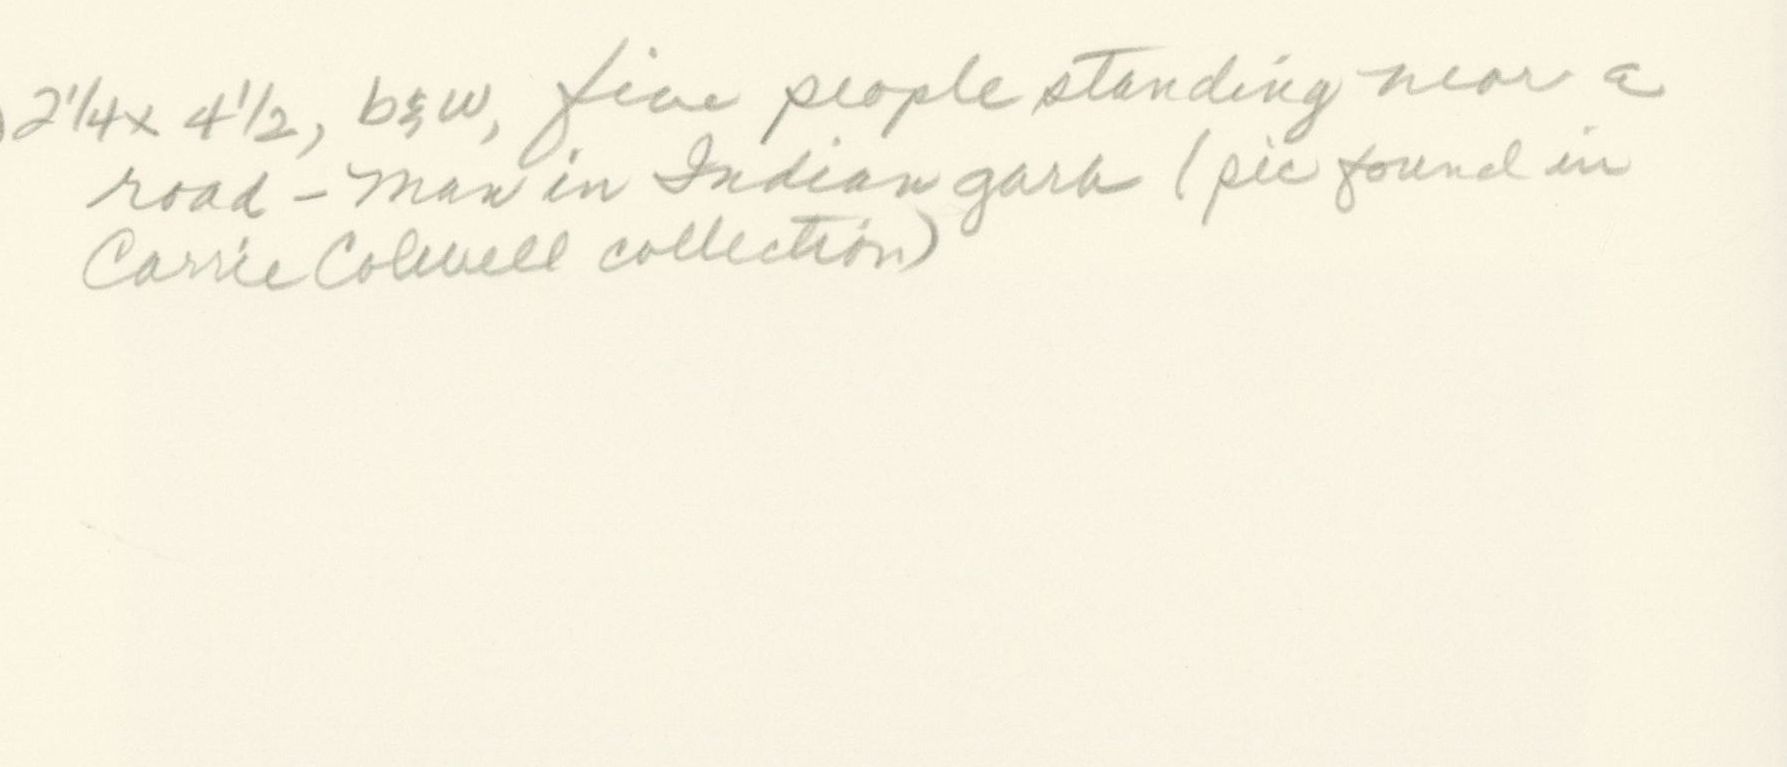 ) 2 1/4 x 4 1/2, b & w, five people standing near a
road - Man in Indian garb (pic found in
Carrie Colwell collection)